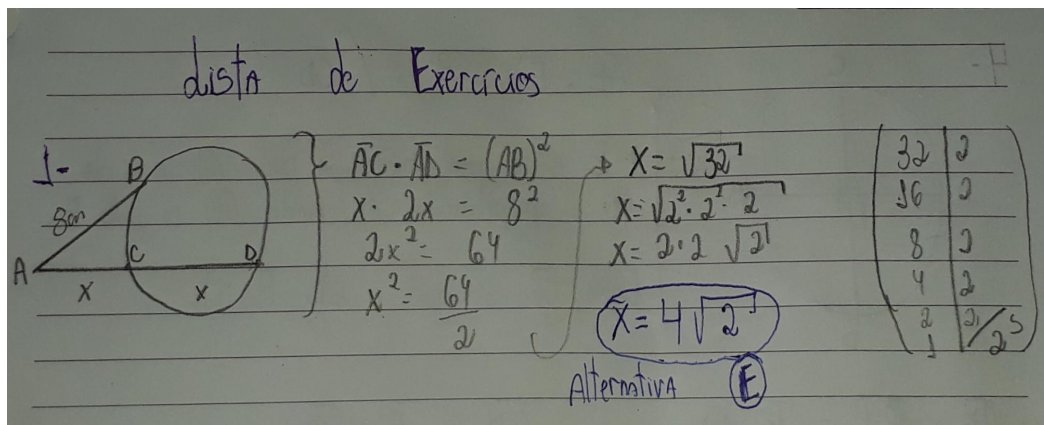 Lista de Exercícios
1-
B
8cm
A
C
D
x
x
AC · AD = (AB)²
x · 2x = 8²
2x² = 64
x² = 64/2
x = √32
x = √2² · 2² · 2
x = 2 · 2 √2
x = 4√2
Alternativa E
32 | 2
16 | 2
8 | 2
4 | 2
2 | 2
1 | 2⁵